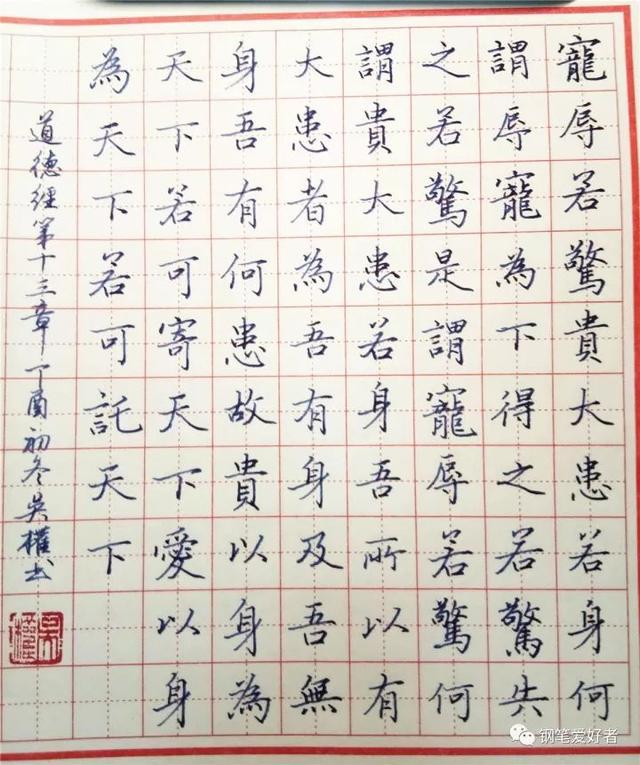 寵辱若驚貴大患若身何
謂辱寵為下得之若驚失
之若驚是謂寵辱若驚何
謂貴大患若身吾所以有
大患者為吾有身及吾無
身吾有何患故貴以身為
天下若可寄天下愛以身
為天下若可託天下
道德經第十三章丁酉初冬吳權書
吳權
钢笔爱好者